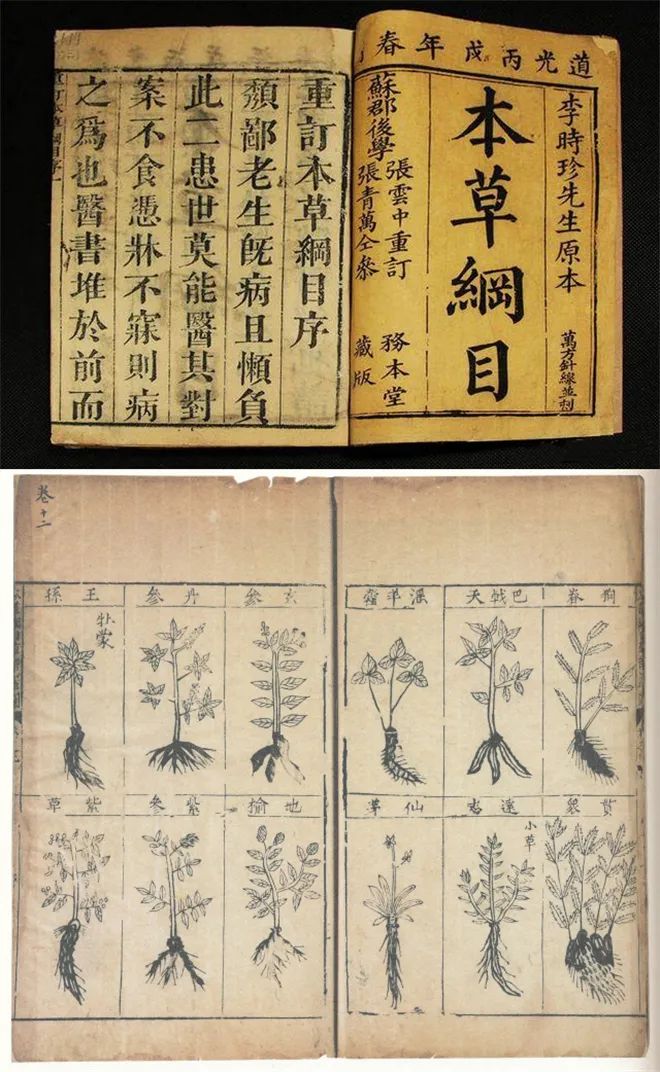 道光丙戌年春
李時珍先生原本
萬方針線並刻
本草綱目
蘇郡後學
張雲中重訂
張青萬仝參
務本堂
藏版
重訂本草綱目序
頹鄙老生旣病且懶負
此二患世莫能醫其對
案不食憑牀不寐則病
之爲也醫書堆於前而
狗脊
巴戟天
淫羊藿
貫衆
遠志
小草
仙茅
玄參
丹參
王孫
牡蒙
地榆
紫參
紫草
卷十二